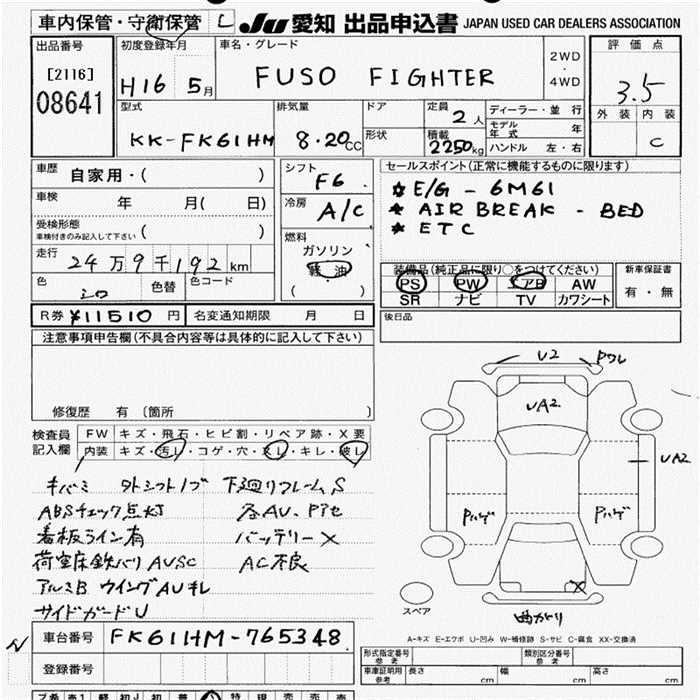 車内保管・守衛保管 L JU 愛知 出品申込書 JAPAN USED CAR DEALERS ASSOCIATION
出品番号 初度登録年月 車名・グレード 2WD ・ 4WD 評価点
[2116] H16 5月 FUSO FIGHTER 3.5
08641 外装 内装
型式 排気量 ドア 定員 2人 ディーラー・並行 C
モデル年式 年
KK-FK61HM 8.20CC 形状 積載 2250kg ハンドル 左・右
車歴 自家用・( ) シフト F6 セールスポイント(正常に機能するものに限ります)
車検 年 月( 日) 冷房 A/C ☆E/G - 6M61
受検形態 * AIR BREAK - BED
車検付きのみ記入して下さい ( ) 燃料 * ETC
走行 24万9千192km ガソリン
軽油 装備品(純正品に限り○をつけてください) 新車保証書
色 シロ 色替 色コード ( ) PS PW エアB AW 有・無
SR ナビ TV カワシート
R券 ¥11510円 名変通知期限 月 日 後日品
注意事項申告欄(不具合内容等は具体的に記入して下さい)
修復歴 有 (箇所 )
U2 ワレ
UA2
UA2
検査員記入欄 FW キズ・飛石・ヒビ割・リペア跡・X要
内装 キズ・汚レ・コゲ・穴・スレ・キレ・破レ
キバミ 外シフトノブ 下廻リフレームS
ABSチェック点灯
看板ライン有 バッテリーX
荷室床鉄バリAUSC AC不良
アルミB ウイングAUキレ
サイドガードU
X
スペア 曲がり
A-キズ E-エクボ U-凹み W-補修跡 S-サビ C-腐食 XX-交換済
車台番号 FK61HM-765348
登録番号
形式指定番号 参考 類別区分番号 参考
車庫証明用 参考 長さ cm 幅 cm 高さ cm